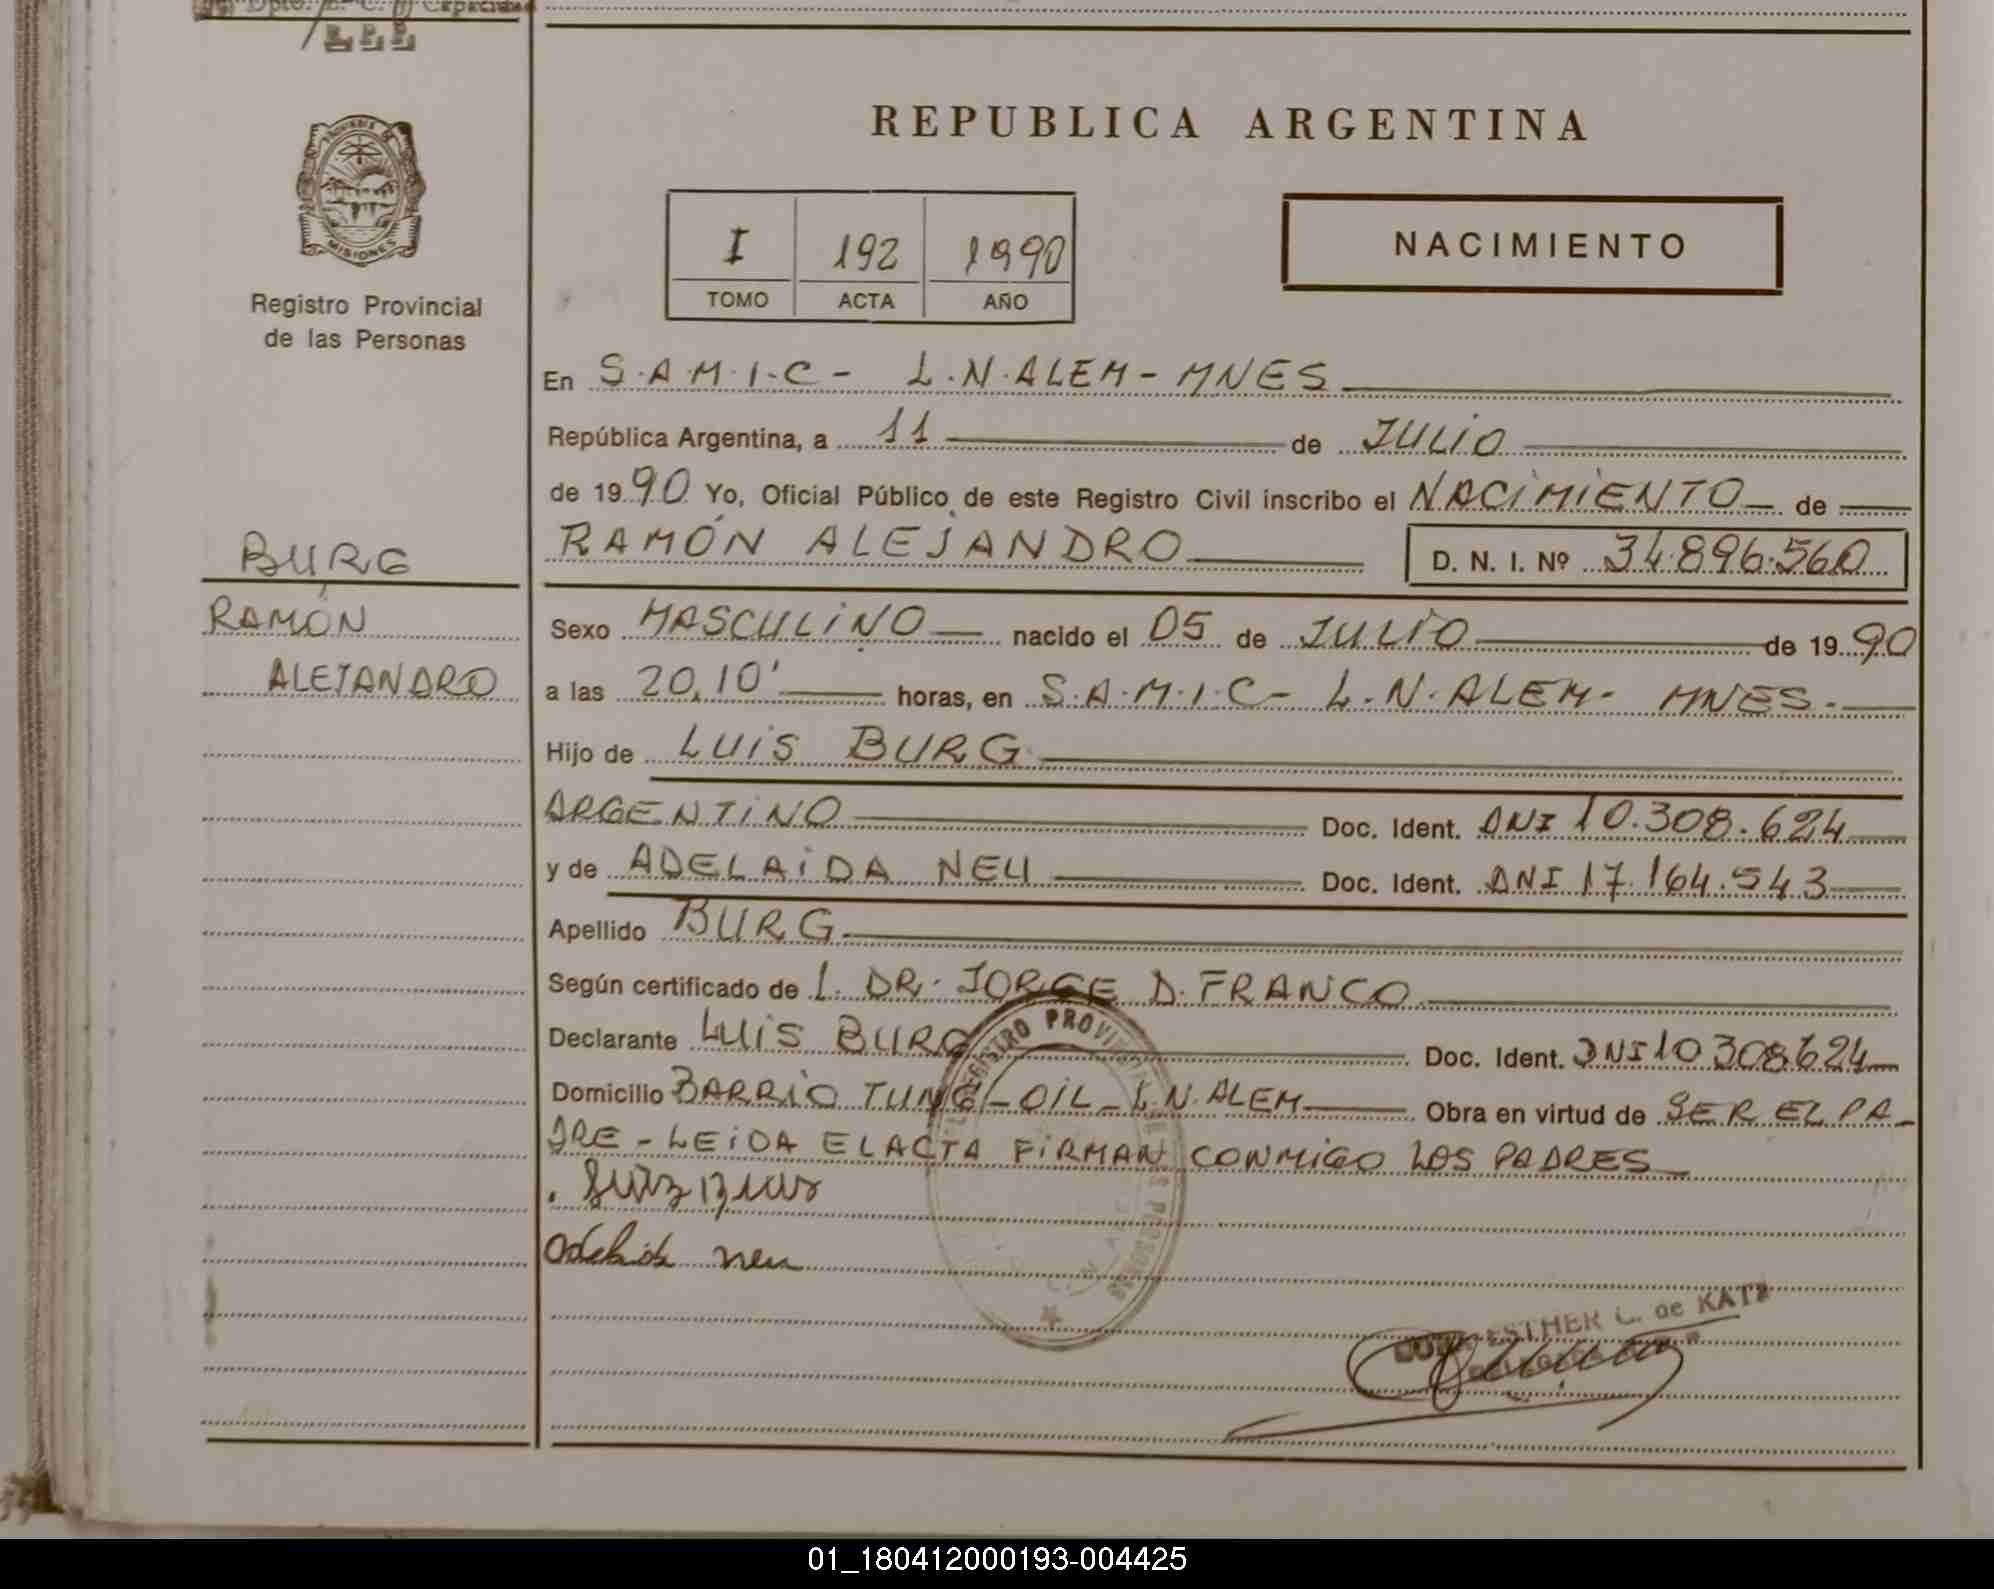 Dpto. E. C. y Capacidad
REPUBLICA ARGENTINA
PROVINCIA DE
MISIONES
Registro Provincial
de las Personas
I 192 1990
TOMO ACTA AÑO
NACIMIENTO
En S.A.M.I.C - L.N.ALEM - MNES
República Argentina, a 11 de JULIO
de 1990 Yo, Oficial Público de este Registro Civil inscribo el NACIMIENTO de
RAMÓN ALEJANDRO D. N. I. Nº 34.896.560
BURG
RAMÓN
ALEJANDRO
Sexo MASCULINO nacido el 05 de JULIO de 1990
a las 20,10' horas, en S.A.M.I.C - L.N.ALEM - MNES.
Hijo de LUIS BURG
ARGENTINO Doc. Ident. DNI 10.308.624
y de ADELAIDA NEU Doc. Ident. DNI 17.164.543
Apellido BURG
Según certificado de L. DR. JORGE D. FRANCO
Declarante LUIS BURG Doc. Ident. DNI 10308624
Domicilio BARRIO TUNG-OIL - L.N.ALEM Obra en virtud de SER EL PA-
DRE - LEIDA EL ACTA FIRMAN CONMIGO LOS PADRES
REGISTRO PROVINCIAL DE LAS PERSONAS
adelaida neu
ESTHER C. de KATZ
01_180412000193-004425